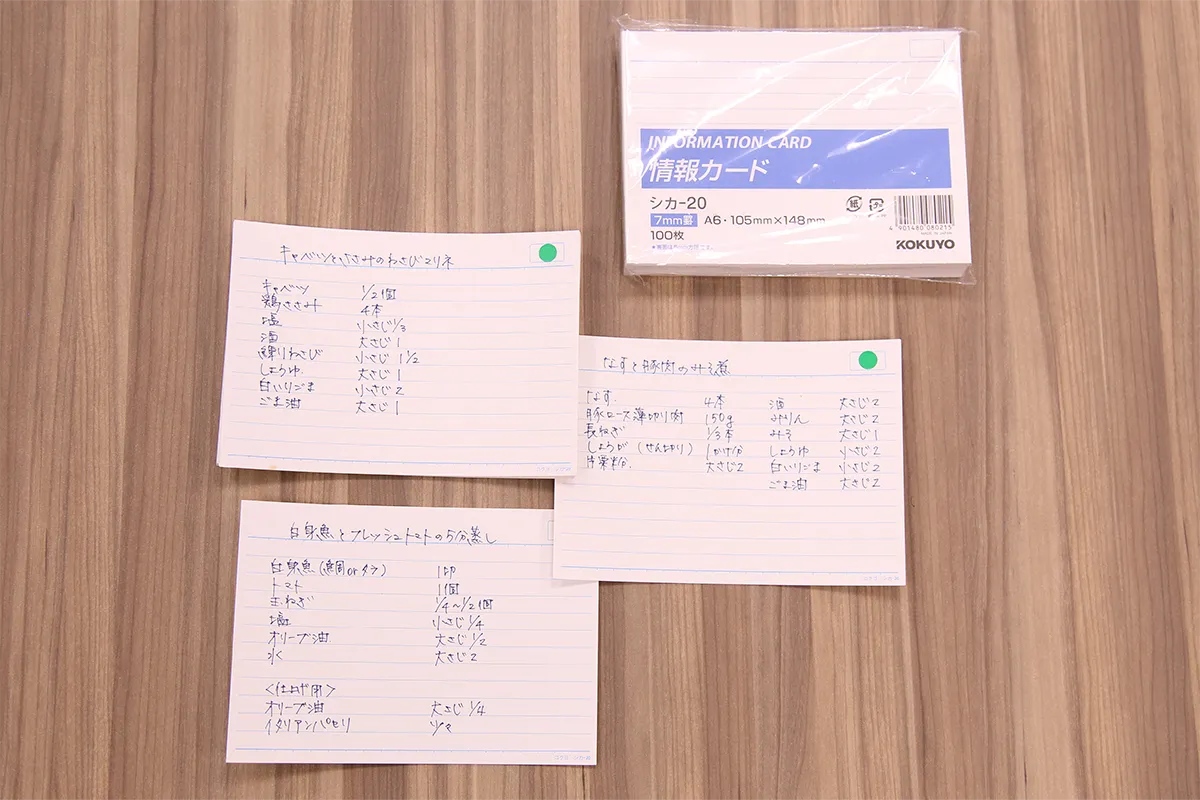 INFORMATION CARD
情報カード
シカ-20
7mm罫 A6・105mm×148mm
100枚
紙
4 901480 080215
MADE IN JAPAN
KOKUYO
キャベツとささみのわさびマリネ
キャベツ 1/2個
鶏ささみ 4本
塩 小さじ1/3
酒 大さじ1
練りわさび 小さじ 1 1/2
しょうゆ 大さじ1
白いりごま 小さじ2
ごま油 大さじ1
なすと豚肉のみそ煮
なす 4本 酒 大さじ2
豚ロース薄切り肉 150g みりん 大さじ2
長ねぎ 1/3本 みそ 大さじ1
しょうが(せん切り) 1かけ分 しょうゆ 小さじ2
片栗粉 大さじ2 白いりごま 小さじ2
ごま油 大さじ2
白身魚とフレッシュトマトの5分蒸し
白身魚(真鯛orタラ) 1切
トマト 1個
玉ねぎ 1/4〜1/2個
塩 小さじ1/4
オリーブ油 大さじ1/2
水 大さじ2
<仕上げ用>
オリーブ油 大さじ1/4
イタリアンパセリ 少々